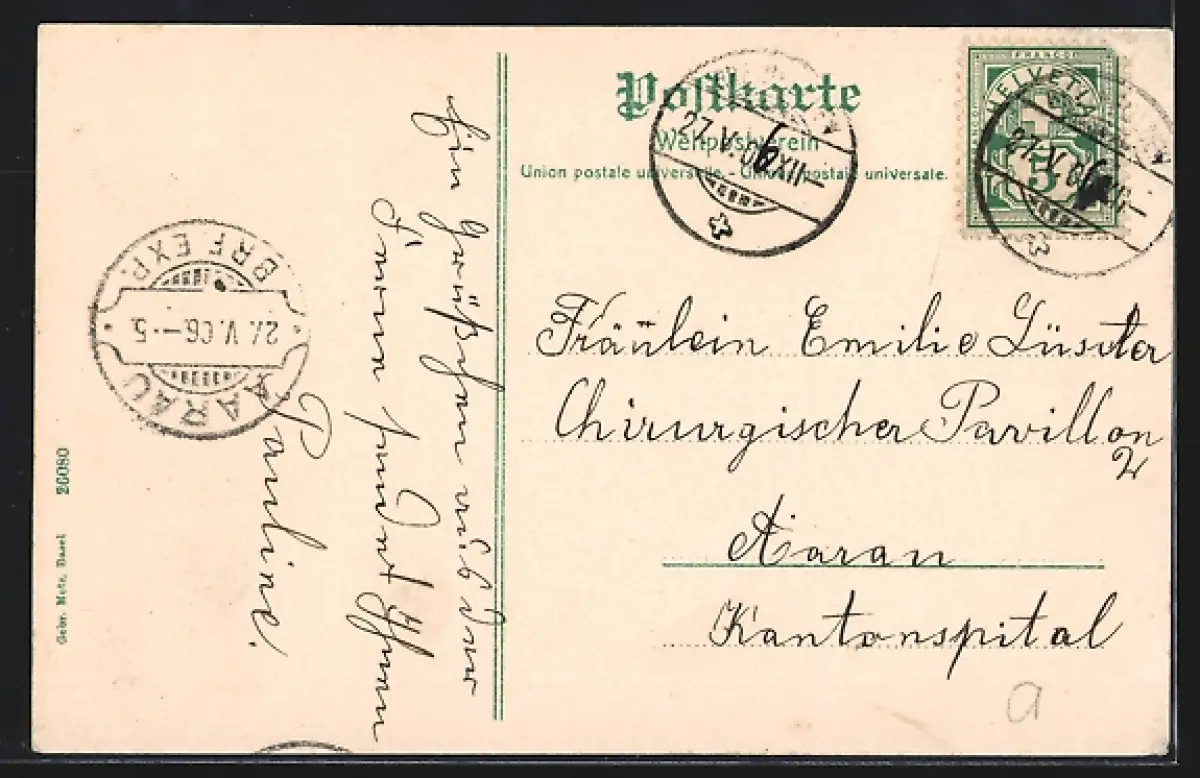 Postkarte
Weltpostverein
Union postale universelle. - Unione postale universale.
FRANCO
HELVETIA
5
27.V.06 XII—
27.V.06 XII—
Fräulein Emilie Lüscher
Chirurgischer Pavillon
2
Aarau
Kantonspital
Ein Grüßchen aus der
Ferne sendet Ihnen
Pauline.
AARAU
27.V.06.—.5
BRF.EXP.
Gebr. Metz, Basel 26080
a